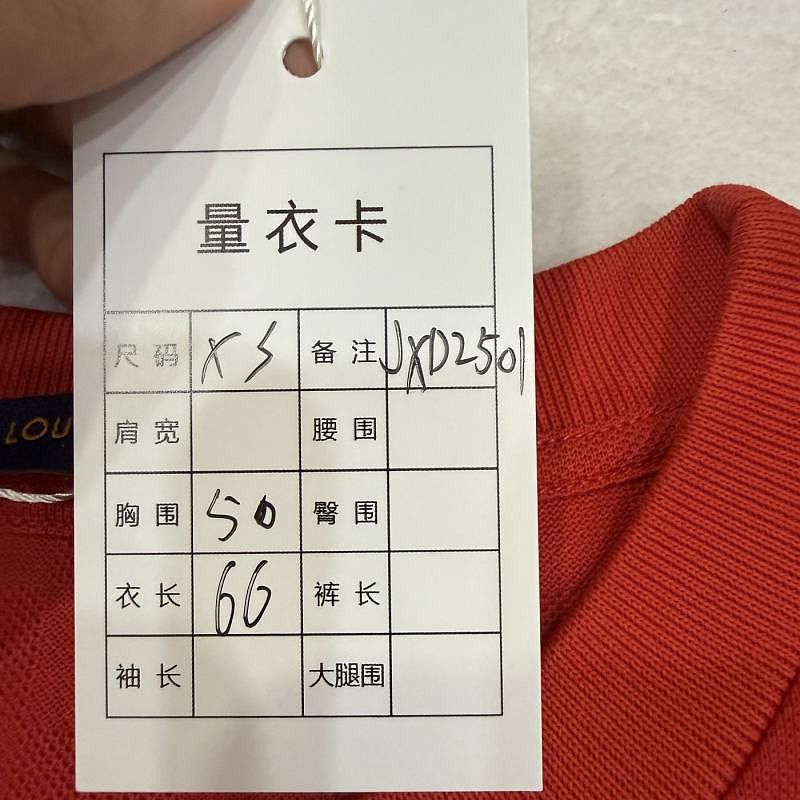 量衣卡
尺码 XS 备注 JXD2501
肩宽 腰围
胸围 50 臀围
衣长 66 裤长
袖长 大腿围
LOU